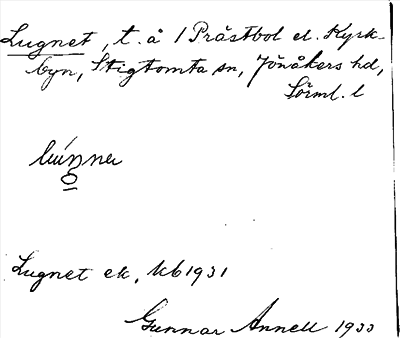 Lugnet, t. å 1 Prästbol el. Kyrk-
byn, Stigtomta sn, Jönåkers hd,
Sörml. l
Lugnet ek, kb 1931
Gunnar Annell 1933